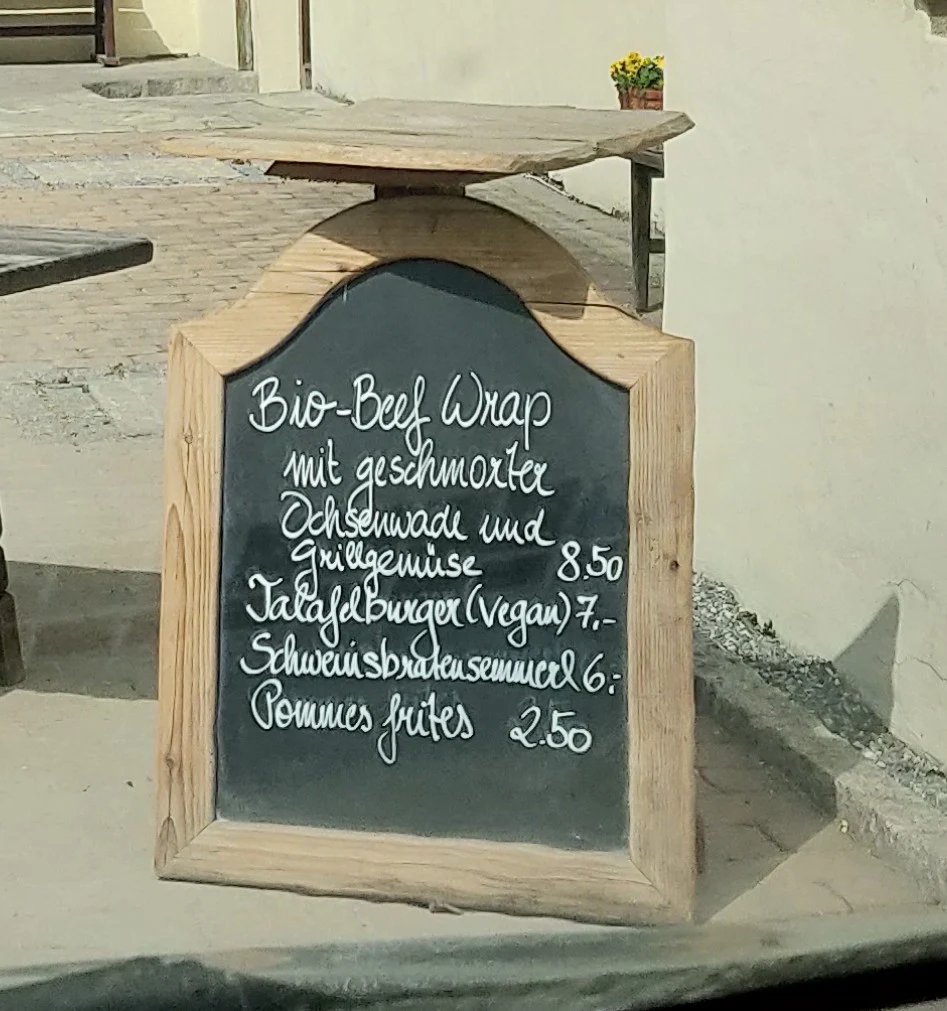 Bio-Beef Wrap
mit geschmorter
Ochsenwade und
Grillgemüse 8.50
Falafelburger (vegan) 7.-
Schweinsbratensemmerl 6.-
Pommes frites 2.50